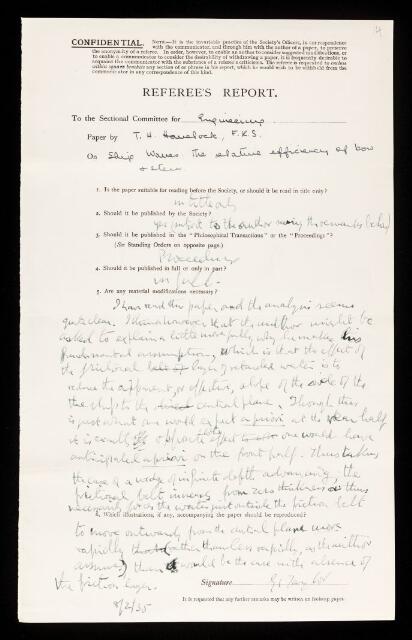 14
CONFIDENTIAL. NOTE.—It is the invariable practice of the Society's Officers, in correspondence
with the communicator, and through him with the author of a paper, to preserve
the anonymity of a referee. In order, however, to enable an author to consider suggested modifications, or
to enable a communicator to consider the desirability of withdrawing a paper, it is frequently desirable to
acquaint the communicator with the substance of a referee's criticisms. The referee is requested to enclose
within square brackets any section of or phrase in his report, which he would wish to be withheld from the
communicator in any correspondence of this kind.
REFEREE'S REPORT.
To the Sectional Committee for Engineering
Paper by T. H. Havelock, F.R.S.
On Ship Waves: the relative efficiency of bow
& stern.
1. Is the paper suitable for reading before the Society, or should it be read in title only?
in title only
2. Should it be published by the Society?
yes subject to the author seeing the remarks below
3. Should it be published in the "Philosophical Transactions" or the "Proceedings"?
(See Standing Orders on opposite page.)
Proceedings
4. Should it be published in full or only in part?
in full.
5. Are any material modifications necessary?
I have read this paper, and the analysis seems
quite clear. I think however that the author might be
asked to explain a little more fully why he makes his
fundamental assumption, which is that the effect of
the frictional layer of retarded water is to
reduce the apparent, or effective, slope of the side of the
the ship to the central plane. Though this
is just what one would expect a priori at the rear half
it is exactly the opposite effect to one would have
anticipated a priori on the front half. Thus taking
the case of a wedge of infinite depth advancing, the
frictional belt increases from zero thickness & thus
necessarily forces the water just outside the friction belt
6. Which illustrations, if any, accompanying the paper should be reproduced?
to move outwards from the central plane more
rapidly (rather than less rapidly, as the author
assumes) than would be the case in the absence of
the friction layer.
Signature G I Taylor
8/2/35
It is requested that any further remarks may be written on foolscap paper.